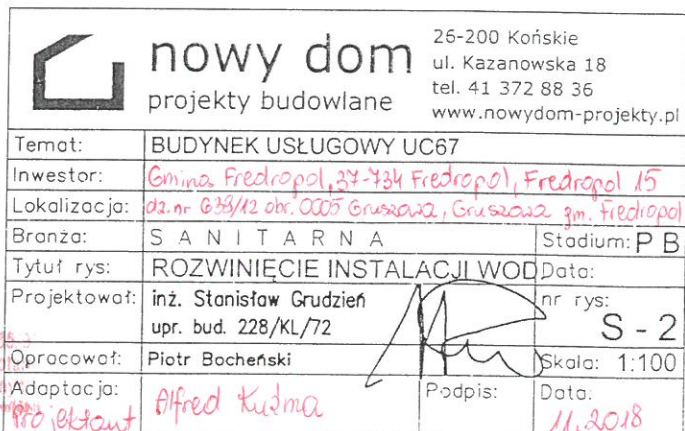 nowy dom
projekty budowlane
26-200 Końskie
ul. Kazanowska 18
tel. 41 372 88 36
www.nowydom-projekty.pl
Temat: BUDYNEK USŁUGOWY UC67
Inwestor: Gmina Fredropol, 37-734 Fredropol, Fredropol 15
Lokalizacja: dz. nr 639/12 obr. 0005 Gruszowa, Gruszowa gm. Fredropol
Branża: SANITARNA Stadium: PB
Tytuł rys: ROZWINIĘCIE INSTALACJI WOD Data:
Projektował: inż. Stanisław Grudzień nr rys:
upr. bud. 228/KL/72 S-2
Opracował: Piotr Bocheński Skala: 1:100
Adaptacja: Alfred Kuźma Podpis: Data:
Projektant 11.2018